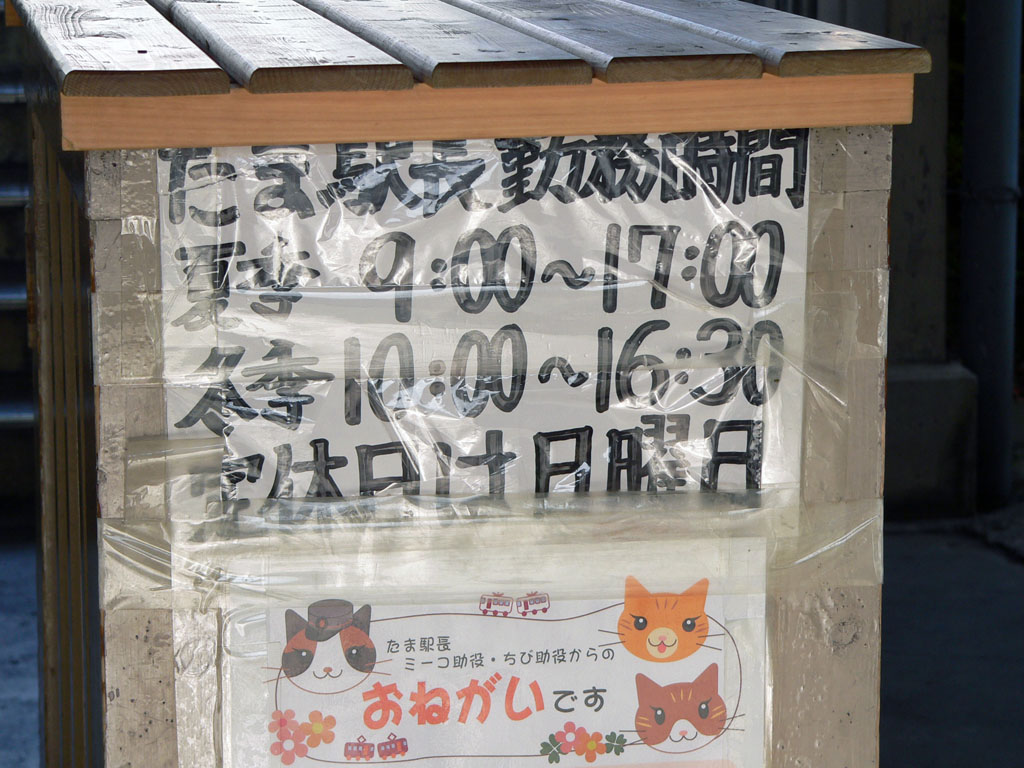 たま駅長勤務時間
夏季 9:00～17:00
冬季 10:00～16:30
定休日は日曜日
たま駅長
ミーコ助役・ちび助役からの
おねがいです